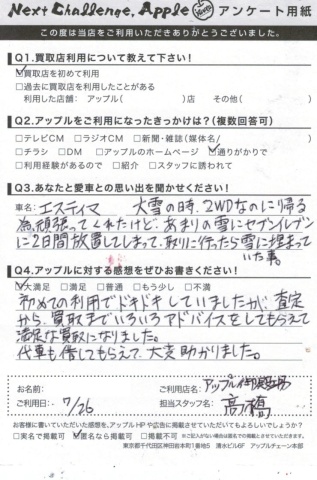 Next Challenge, Apple アンケート用紙
この度は当店をご利用いただきありがとうございました。
Q1.買取店利用について教えて下さい!
☑買取店を初めて利用
□過去に買取店を利用したことがある
利用した店舗: アップル( )店 その他( )
Q2.アップルをご利用になったきっかけは?(複数回答可)
□テレビCM □ラジオCM □新聞・雑誌(媒体名/ )
□チラシ □DM □アップルのホームページ ☑通りがかりで
□利用経験があるので □紹介 □スタッフに誘われて
Q3.あなたと愛車との思い出を聞かせください!
車名: エスティマ 大雪の時、2WDなのに帰る
為頑張ってくれたけど、あまりの雪にセブンイレブン
に2日間放置してしまって、取りに行ったら雪に埋まって
いた事。
Q4.アップルに対する感想をぜひお書きください!
☑大満足 □満足 □普通 □もう少し □不満
初めての利用でドキドキしていましたが、査定
から、買取までいろいろアドバイスをしてもらえて
満足な買取になりました。
代車も借してもらえて、大変助かりました。
お名前: ご利用店名: アップル
ご利用日: 7/26 担当スタッフ名: 高橋
お客様に書いていただいた感想を、アップルHPや広告に掲載させていただいてもよろしいでしょうか?
□実名で掲載可 ☑匿名なら掲載可 □掲載不可 ※ご記入がない場合は匿名での掲載とさせていただきます。
東京都千代田区神田岩本町1番地5 清水ビル6F アップルチェーン本部